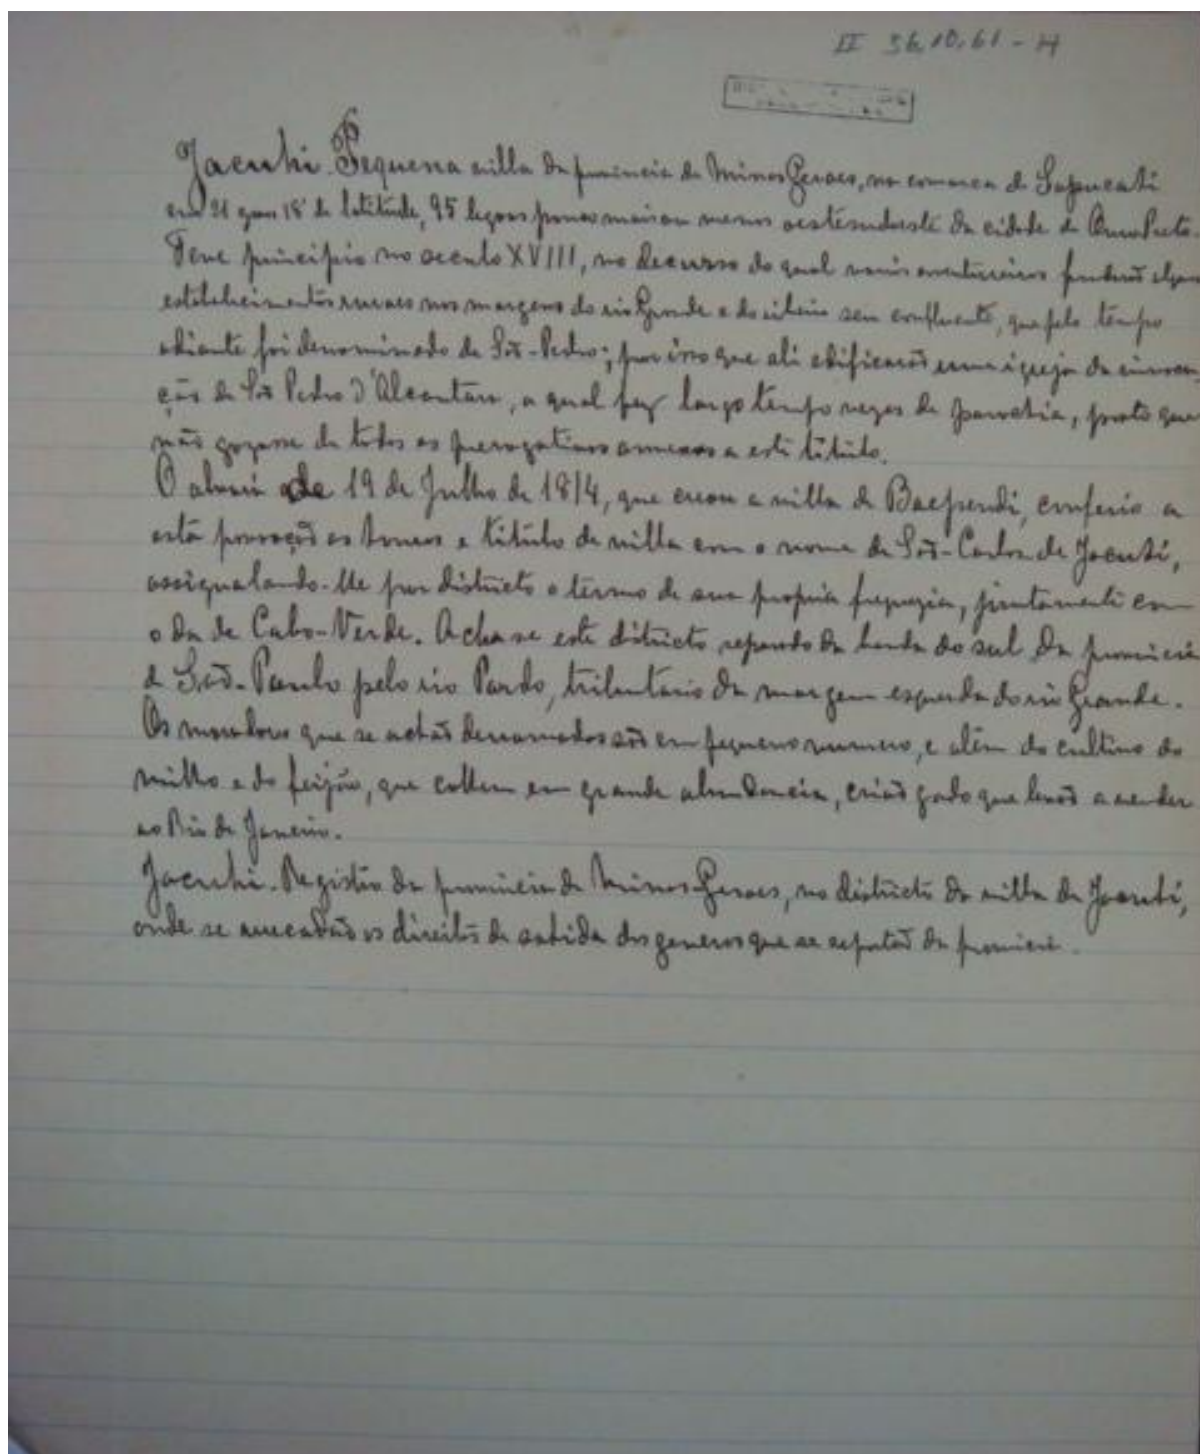 II 36,10,61 - H
Jacuhi. Pequena villa da provincia de Minas Geraes, na comarca de Sapucahi
em 21 graus 18' de latitude, 95 legoas pouco mais ou menos oestesudoeste da cidade de Ouro Preto.
Teve principio no seculo XVIII, no decurso do qual varios aventureiros fundarão alguns
estabelecimentos ruraes nas margens do rio Grande e do ribeiro seu confluente, que pelo tempo
adiante foi denominado de São-Pedro; por isso que ali edificarão uma igreja da invoca
ção de São Pedro d'Alcantara, a qual fez largo tempo vezes de parochia, posto que
não gozasse de todas as prerogativas annexas a este titulo.
O alvará de 19 de Julho de 1814, que creou a villa de Baependi, conferio a
esta povoação as honras e titulo de villa com o nome de São-Carlos de Jacuhi,
assignalando-lhe por districto o termo de sua propria freguezia, juntamente com
o da de Cabo-Verde. Acha-se este districto separado da banda do sul da provincia
de São-Paulo pelo rio Pardo, tributario da margem esquerda do rio Grande.
Os moradores que se achão derramados são em pequeno numero, e além do cultivo do
milho e do feijão, que colhem em grande abundancia, crião gado que levão a vender
ao Rio de Janeiro.
Jacuhi. Registro da provincia de Minas-Geraes, no districto da villa de Jacuhi,
onde se arrecadão os direitos de sahida dos generos que se exportão da provincia.